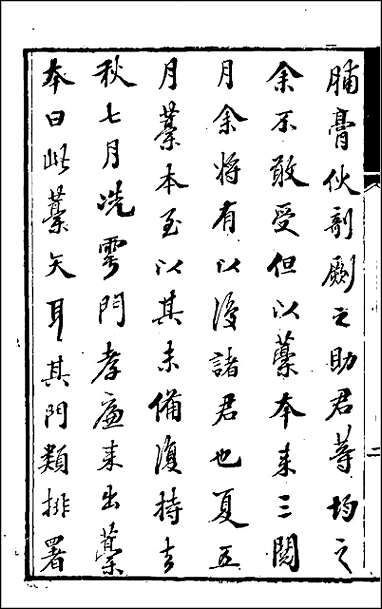 脯膏伙剞劂之助君等均之
余不敢受但以藁本来三閱
月余将有以復諸君也夏五
月藁本至以其未備復持去
秋七月冼雩門孝廉来出藁
本曰此藁矢耳其門類排署
二